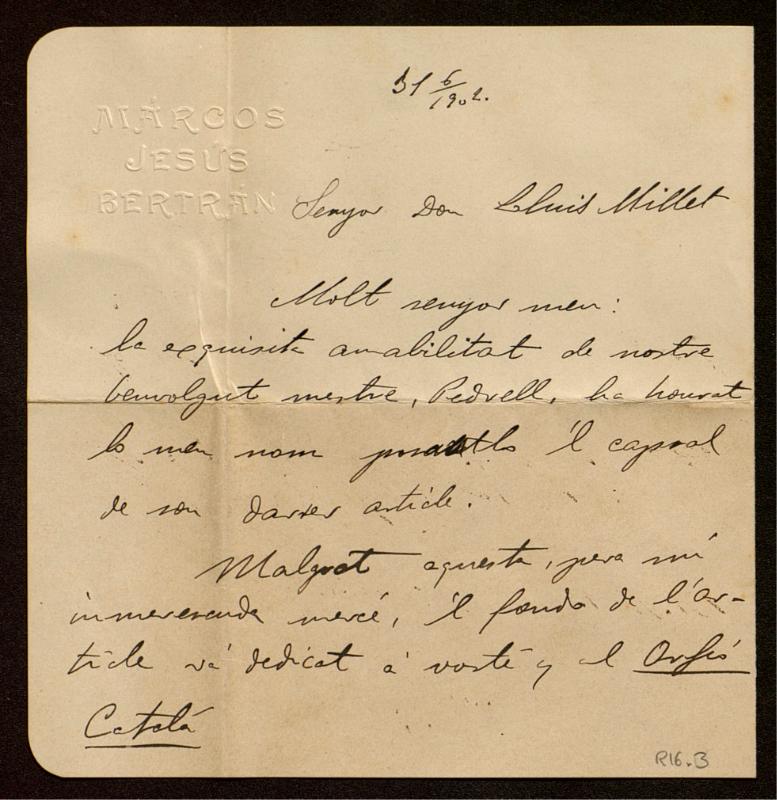 31 6/1902.
MARCOS
JESÚS
BERTRÁN
Senyor Don Lluis Millet
Molt senyor meu:
la exquisita amabilitat de nostre
benvolgut mestre, Pedrell, ha honrat
lo meu nom 'l capsal
de son darrer article.
Malgrat aquesta, pera mi
inmerescuda mercé, 'l fondo de l'ar-
ticle vá dedicat á vosté y al Orfeó
Catalá
R16.B